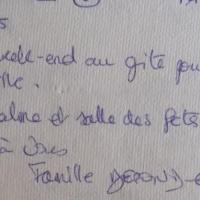 s
week-end au gîte pou
lle.
alme et salle des fêtes
à
Famille